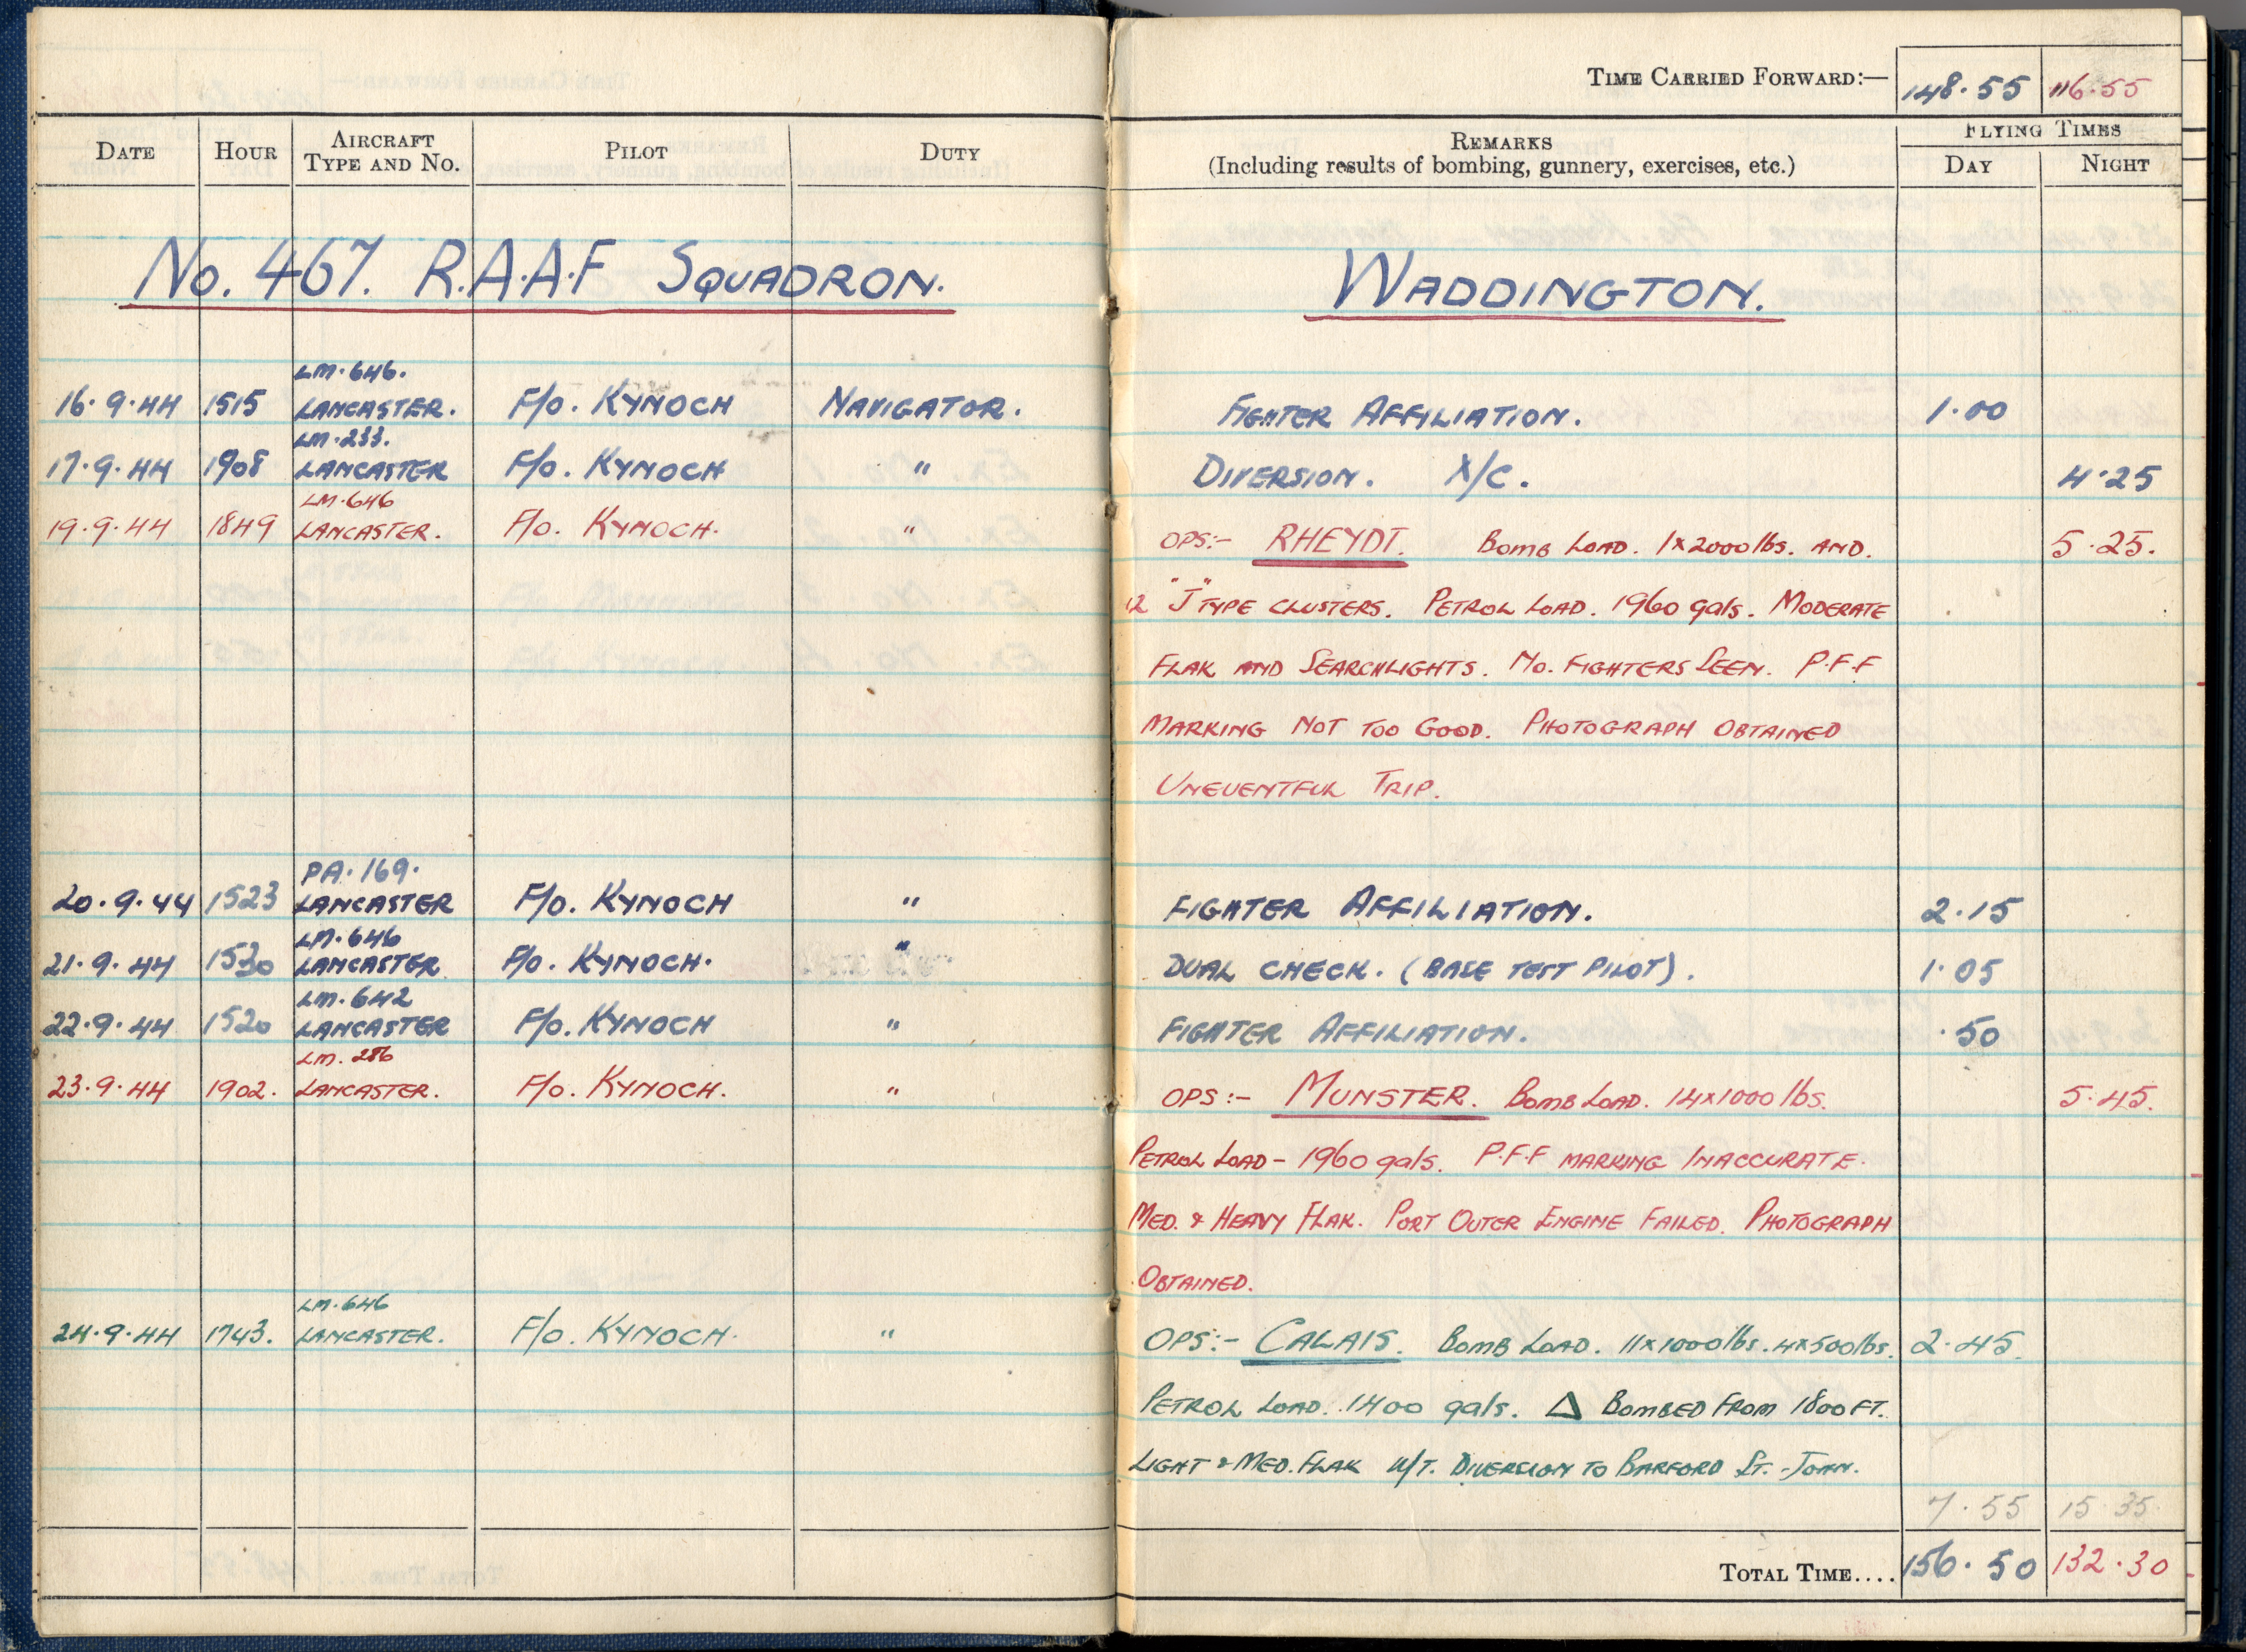 TIME CARRIED FORWARD:— 148.55 116.55
DATE HOUR AIRCRAFT TYPE AND NO. PILOT DUTY REMARKS (Including results of bombing, gunnery, exercises, etc.) FLYING TIMES DAY NIGHT
No. 467. R.A.A.F SQUADRON. WADDINGTON.
LM.646.
16.9.44 1515 LANCASTER. F/O. KYNOCH NAVIGATOR. FIGHTER AFFILIATION. 1.00
LM.233.
17.9.44 1908 LANCASTER F/O. KYNOCH " DIVERSION. X/C. 4.25
LM.646
19.9.44 1849 LANCASTER. F/O. KYNOCH. " OPS:- RHEYDT. BOMB LOAD. 1x2000lbs. AND. 5.25.
12 "J" TYPE CLUSTERS. PETROL LOAD. 1960 gals. MODERATE
FLAK AND SEARCHLIGHTS. NO. FIGHTERS SEEN. P.F.F
MARKING NOT TOO GOOD. PHOTOGRAPH OBTAINED
UNEVENTFUL TRIP.
PA.169.
20.9.44 1523 LANCASTER F/O. KYNOCH " FIGHTER AFFILIATION. 2.15
LM.646
21.9.44 1530 LANCASTER F/O. KYNOCH. " DUAL CHECK. (BASE TEST PILOT). 1.05
LM.642
22.9.44 1520 LANCASTER F/O. KYNOCH " FIGHTER AFFILIATION. .50
LM. 286
23.9.44 1902. LANCASTER. F/O. KYNOCH. " OPS:- MUNSTER. BOMB LOAD. 14x1000lbs. 5.45.
PETROL LOAD - 1960 gals. P.F.F MARKING INACCURATE.
MED. & HEAVY FLAK. PORT OUTER ENGINE FAILED. PHOTOGRAPH
OBTAINED.
LM.646
24.9.44 1743. LANCASTER. F/O. KYNOCH. " OPS:- CALAIS. BOMB LOAD. 11x1000lbs. 4x500lbs. 2.45.
PETROL LOAD. 1400 gals. △ BOMBED FROM 1800 FT.
LIGHT & MED. FLAK W/T. DIVERSION TO BARFORD ST. JOHN.
7.55 15.35
TOTAL TIME.... 156.50 132.30